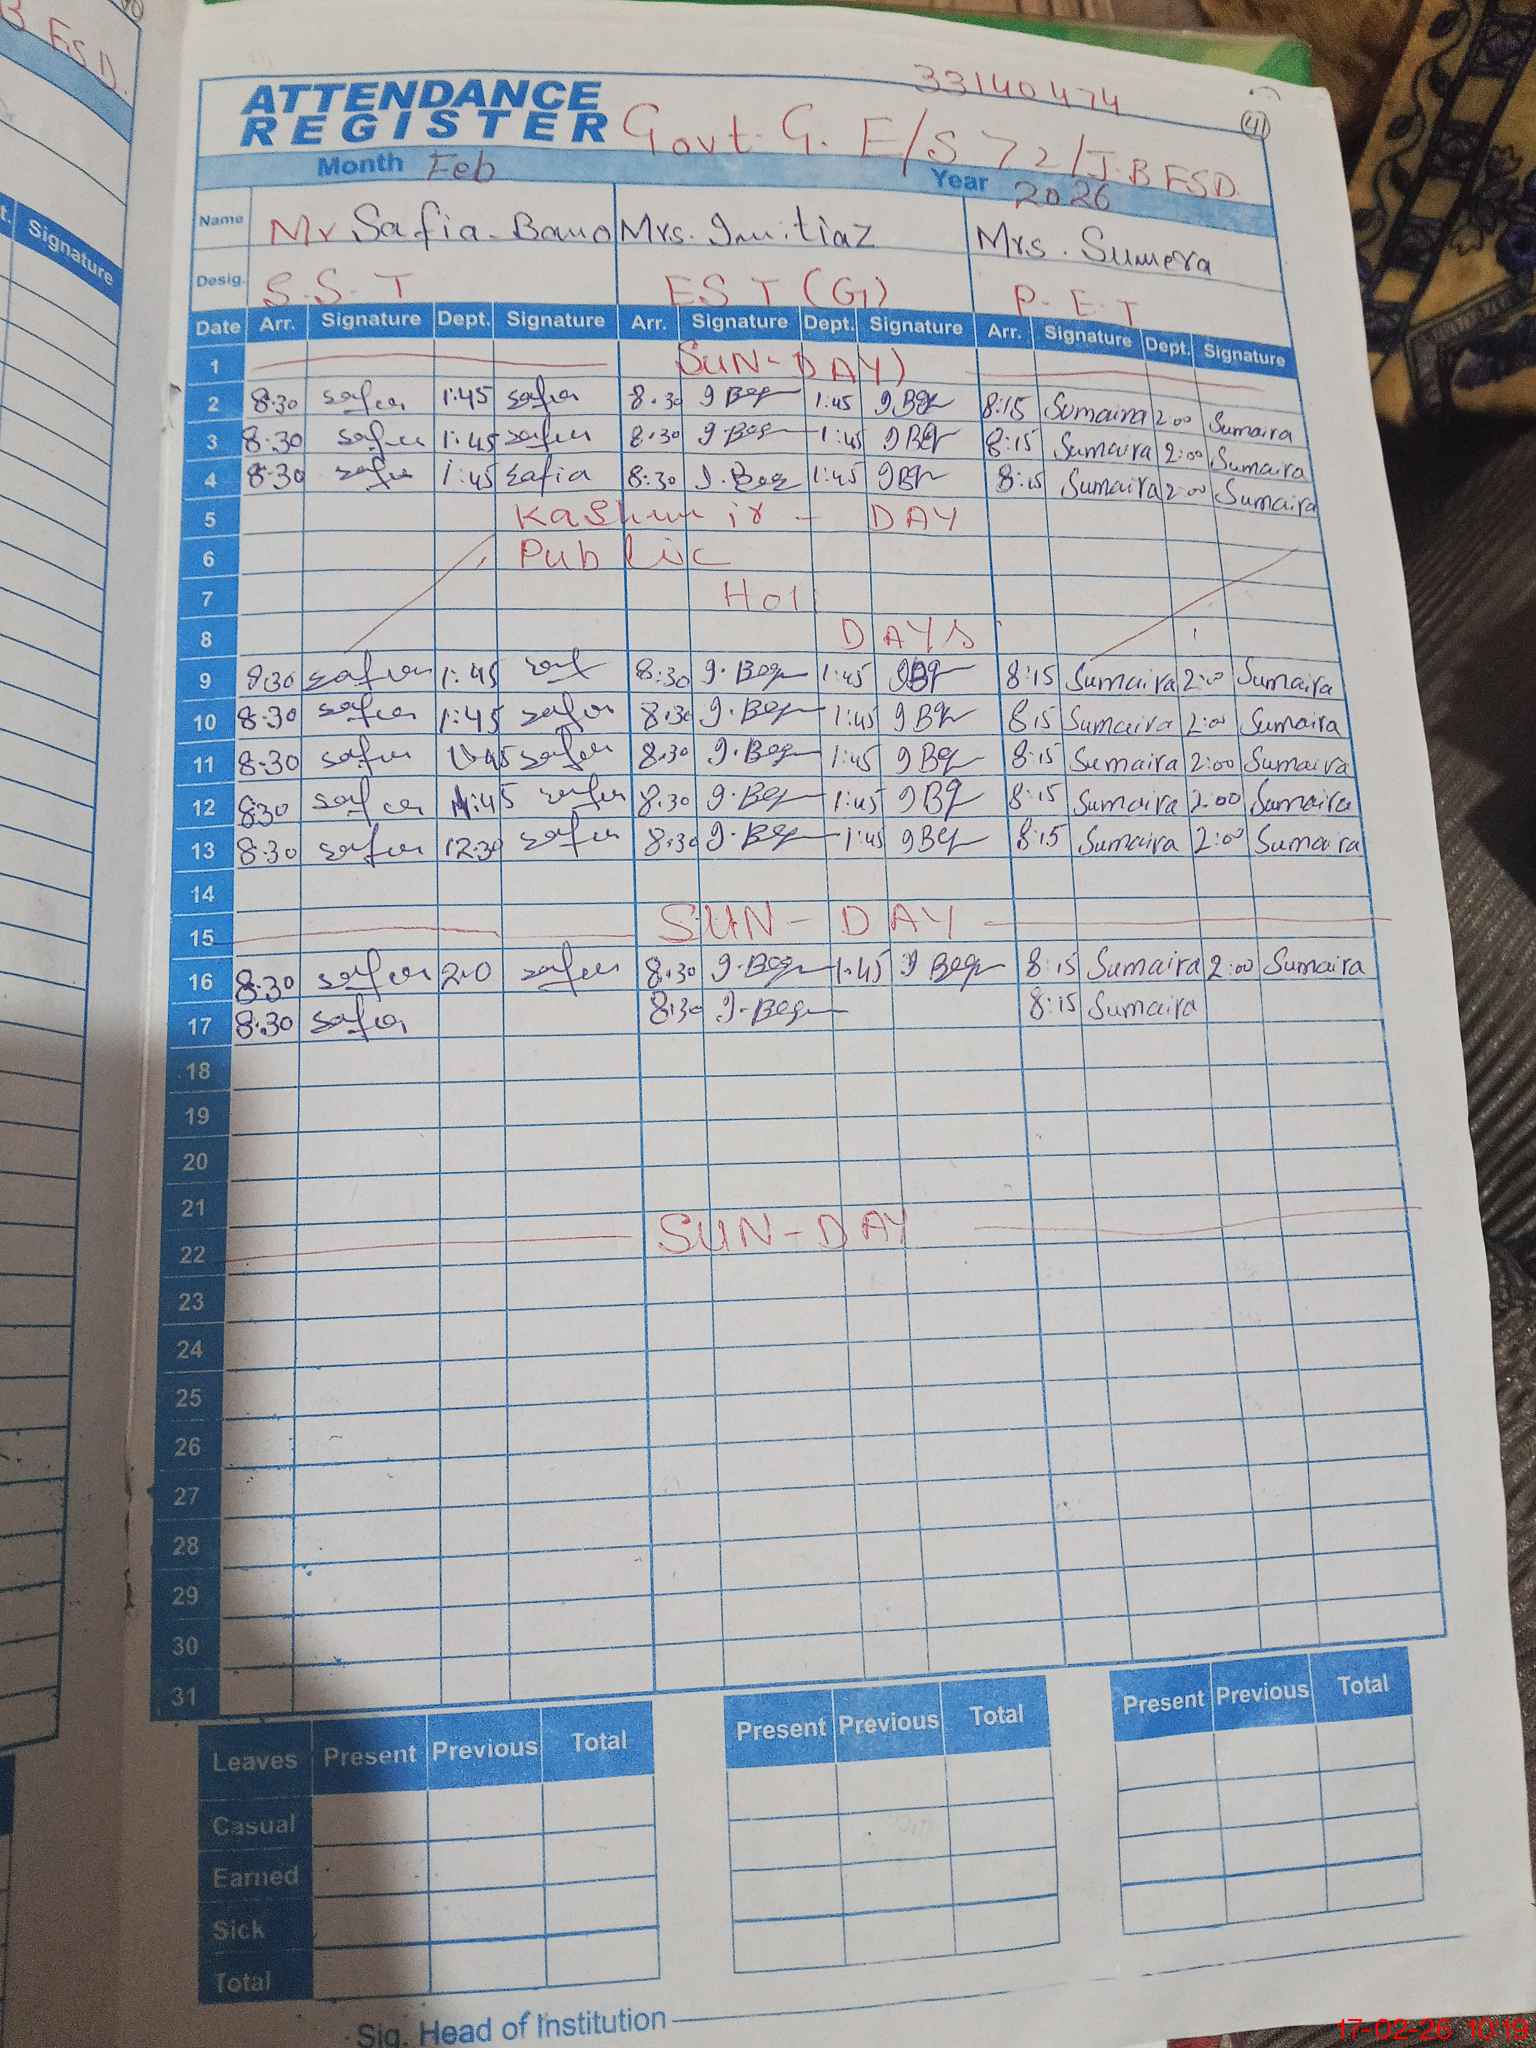 B FSD.
Signature
33140474
41
ATTENDANCE
REGISTER Govt. G. E/S 72/J.B FSD.
Month Feb Year 2026
Name Safia Bano Mrs. Imitiaz Mrs. Sumera
Desig. S.S.T EST (G) P.E.T
Date Arr. Signature Dept. Signature Arr. Signature Dept. Signature Arr. Signature Dept. Signature
1 SUN-DAY
2 8:30 safia 1:45 safia 8:30 I Beg 1:45 I Beg 8:15 Sumaira 2:00 Sumaira
3 8:30 safia 1:45 safia 8:30 I Beg 1:45 I Beg 8:15 Sumaira 2:00 Sumaira
4 8:30 safia 1:45 safia 8:30 I. Beg 1:45 I Beg 8:15 Sumaira 2:00 Sumaira
5 Kashmir - DAY
6 Public
7 Hol
8 DAYS
9 8:30 safia 1:45 saf 8:30 I. Beg 1:45 I Beg 8:15 Sumaira 2:00 Sumaira
10 8:30 safia 1:45 safia 8:30 I. Beg 1:45 I Beg 8:15 Sumaira 2:00 Sumaira
11 8:30 safia 1:45 safia 8:30 I. Beg 1:45 I Beg 8:15 Sumaira 2:00 Sumaira
12 8:30 safia 1:45 safia 8:30 I. Beg 1:45 I Beg 8:15 Sumaira 2:00 Sumaira
13 8:30 safia 12:30 safia 8:30 I. Beg 1:45 I Beg 8:15 Sumaira 2:00 Sumaira
14
15 SUN-DAY
16 8:30 safia 2:0 safia 8:30 I. Beg 1:45 I Beg 8:15 Sumaira 2:00 Sumaira
17 8:30 safia 8:30 I. Beg 8:15 Sumaira
18
19
20
21
22 SUN-DAY
23
24
25
26
27
28
29
30
31
Leaves Present Previous Total Present Previous Total Present Previous Total
Casual
Earned
Sick
Total
Sig. Head of Institution
17-02-26 10:19